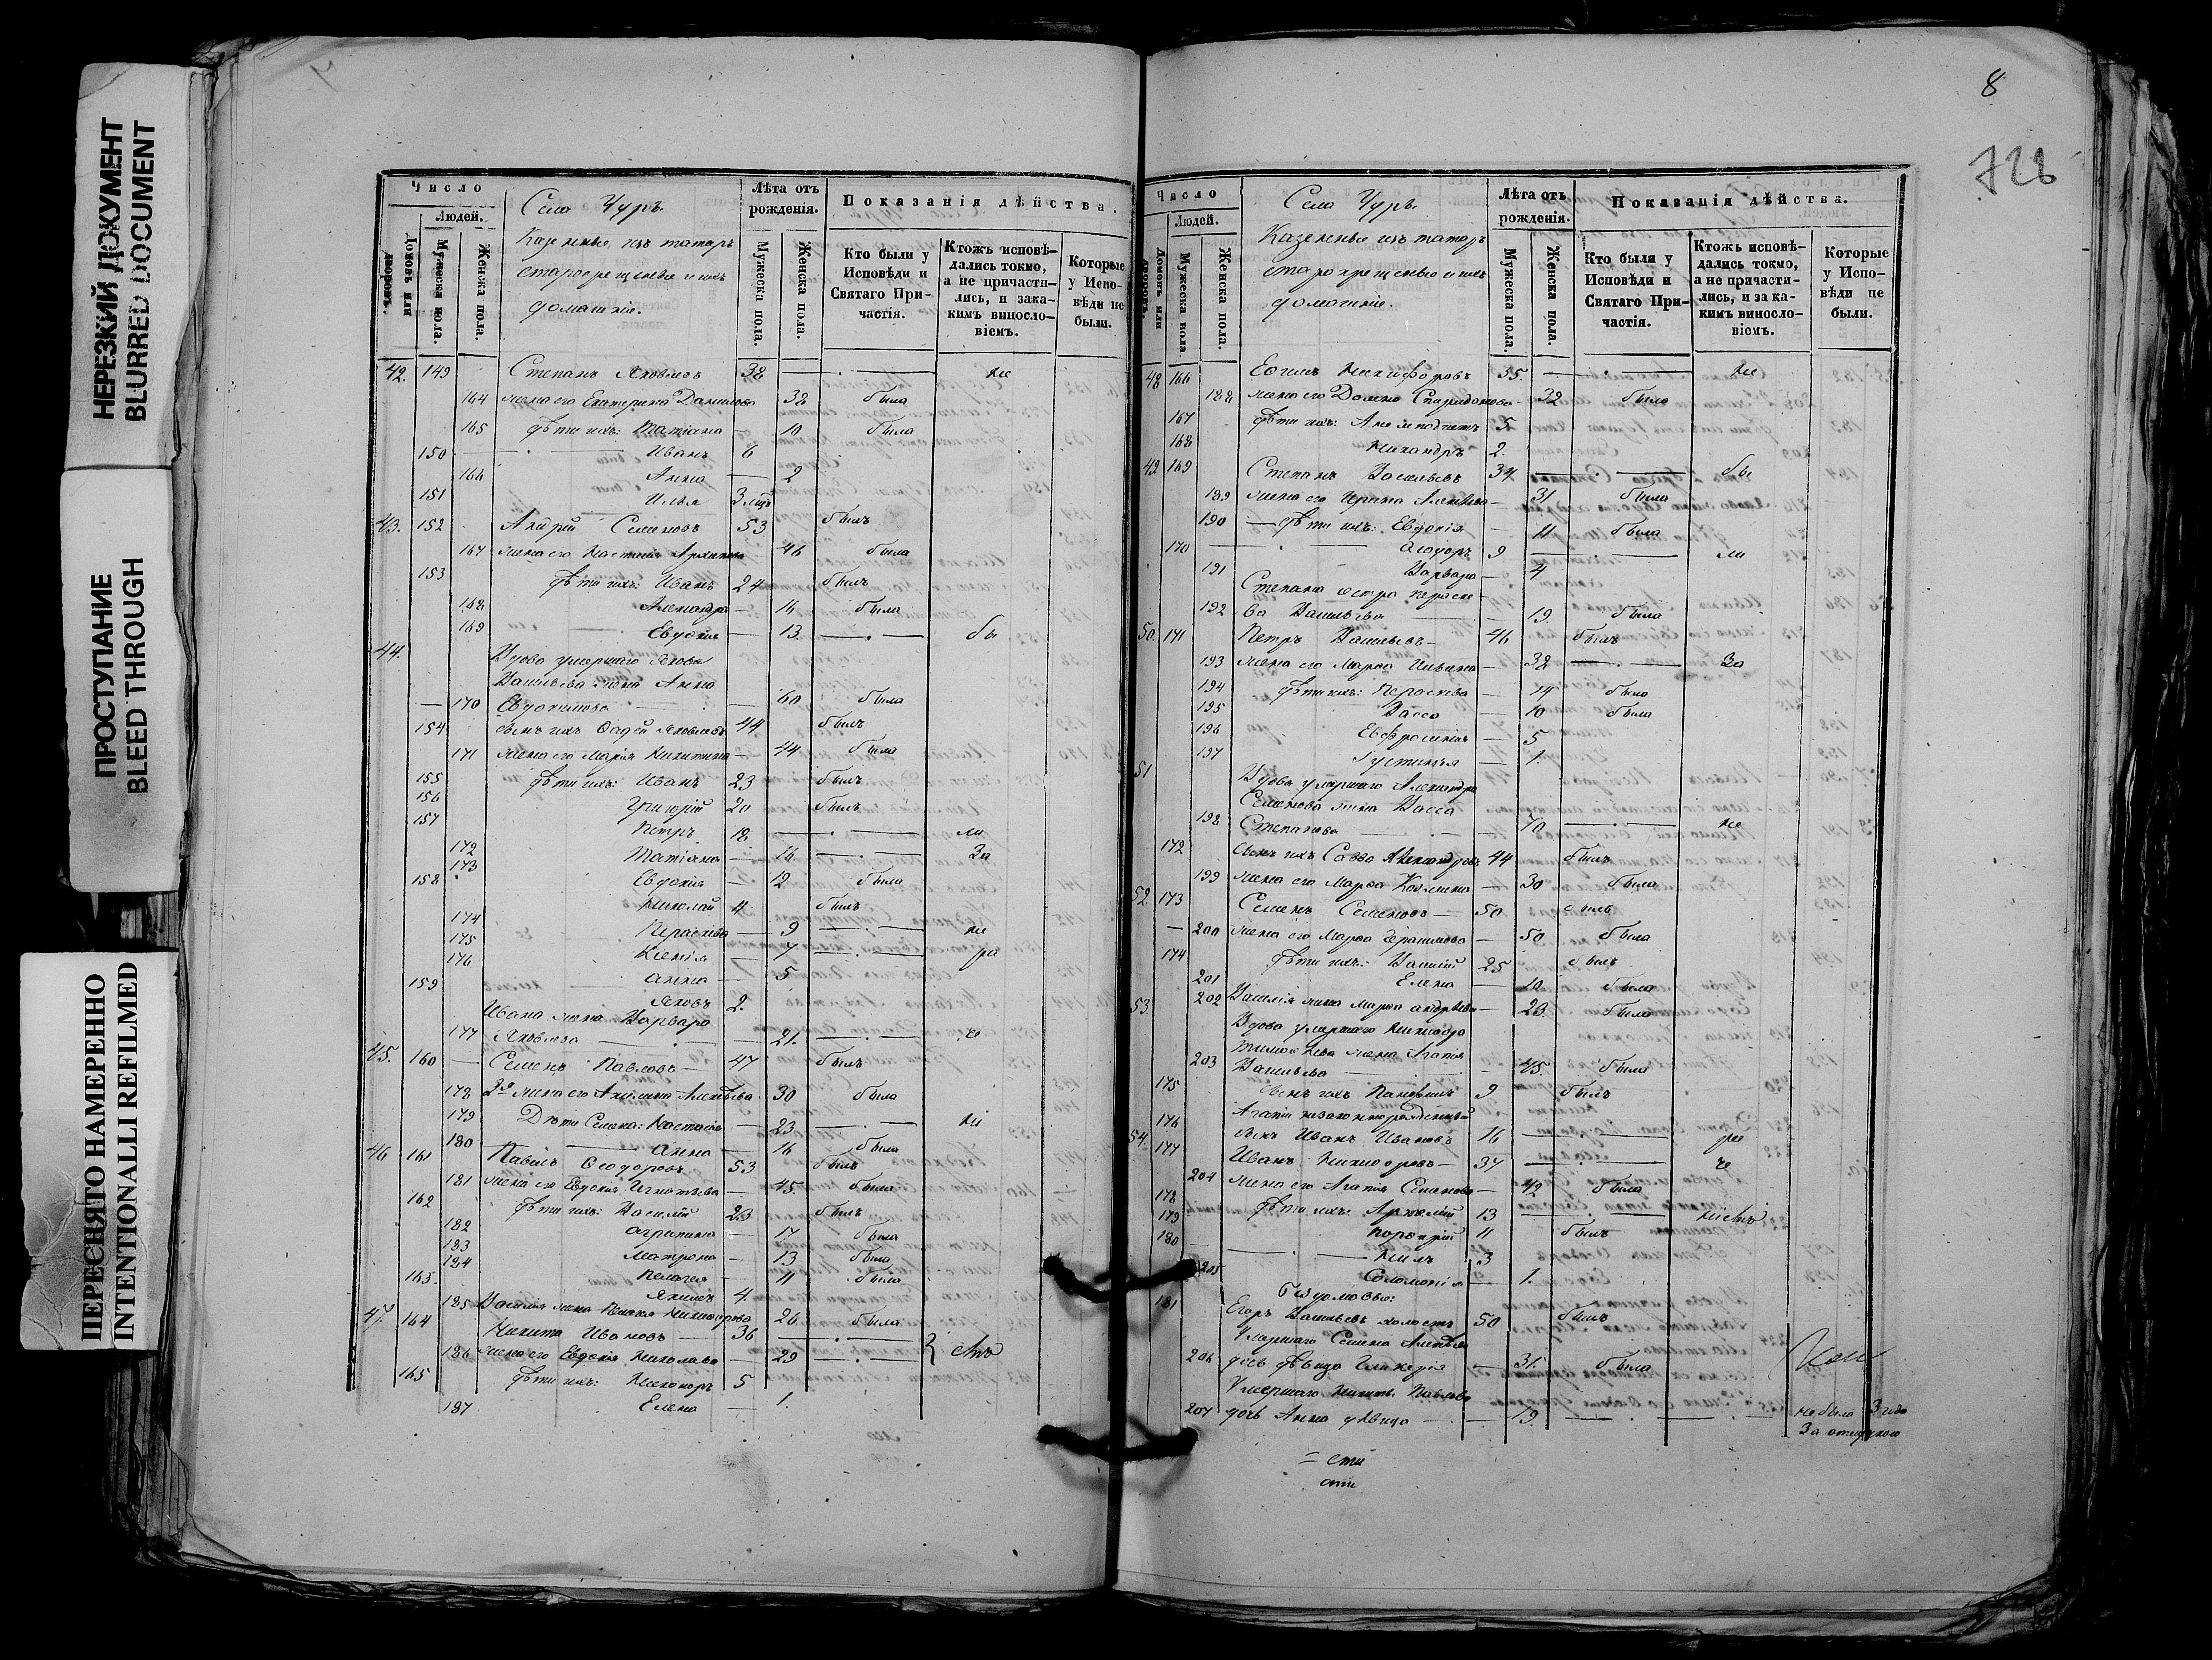 НЕРЕЗКИЙ ДОКУМЕНТ
BLURRED DOCUMENT
ПРОСТУПАНИЕ
BLEED THROUGH
ПЕРЕСНЯТО НАМЕРЕННО
INTENTIONALLI REFILMED
Число
Людей.
Домовъ или дворовъ.
Мужеска пола.
Женска пола.
Села Чуръ.
Казенные изъ татаръ
старокрещеные и ихъ
домашніе.
Лѣта отъ рожденія.
Мужеска пола.
Женска пола.
Показанія дѣйства.
Кто были у Исповѣди и Святаго Причастія.
Ктожъ исповѣдались токмо, а не причастились, и за какимъ винословіемъ.
Которые у Исповѣди не были.
42. 149 Степанъ Яковлевъ 38 не
164 жена его Екатерина Данилова 38 была
165 дѣти ихъ: Татіана 10 была
150 Иванъ 6
166 Анна 2
151 Илья 3
43. 152 Андрей Семеновъ 53 былъ
167 жена его Настасія Архипова 46 была
153 дѣти ихъ: Иванъ 24 былъ
168 Александра 16 была
169 Евдокія 13 бы
44. Вдова умершаго Якова
Васильева жена Анна
170 Евдокимова 60 была
154 сынъ ихъ Фадей Яковлевъ 44 былъ
171 жена его Марія Никитина 44 была
155 дѣти ихъ: Иванъ 23 былъ
156 Григорій 20 былъ
157 Петръ 18 ли
172 Татіана 16 За
173 Евдокія 12 была
158 Николай 11 былъ
174 Параскева 9 не
175 Ксенія 7 ра
176 Анна 5
159 Яковъ 2.
Ивана жена Варвара
177 Яковлева 21.
45. 160 Семенъ Павловъ 47 былъ
178 2я жена его Акилина Алексѣева 30 была
179 Дѣти Семена: Настасія 23 не
180 Анна 16 была
46 161 Павелъ Ѳеодоровъ 53 былъ
181 жена его Евдокія Игнатьева 45. была
162 дѣти ихъ: Василій 23 былъ
182 Агрипина 17 была
183 Матрона 13 была
184 Пелагея 11 была
163. Якимъ 4.
185 Василія жена Никифорова 26 была
47. 164 Никита Ивановъ 36
186 жена его Евдокія Николаева 29
165 дѣти ихъ: Никаноръ 5
187 Елена 1.
8
726
Число
Людей.
Домовъ или дворовъ.
Мужеска пола.
Женска пола.
Села Чуръ.
Казенные изъ татаръ
старокрещеные и ихъ
домашніе.
Лѣта отъ рожденія.
Мужеска пола.
Женска пола.
Показанія дѣйства.
Кто были у Исповѣди и Святаго Причастія.
Ктожъ исповѣдались токмо, а не причастились, и за какимъ винословіемъ.
Которые у Исповѣди не были.
48 166 Никифоровъ 55. не
188 жена его Домна Спиридонова 32 была
167 дѣти ихъ: 5
168 Никандръ 2.
49. 169 Степанъ Васильевъ 34 бы
189 жена его Ирина Алексѣева 31 была
190 дѣти ихъ: Евдокія 11 была
170 Ѳеодоръ 9 ли
191 Варвара 4
Степана сестра Параске
192 ва Васильева 19. была
50. 171 Петръ Васильевъ 46 былъ
193 жена его Марѳа 32 За
194 дѣти ихъ: Параскева 14 была
195 Васса 10 была
196 Евфросинія 5
197 Іустинія 1.
51 Вдова умершаго Александра
Семенова жена Васса
198 Степанова 70 не
172 сынъ ихъ Савва Александровъ 44 былъ
199 жена его Марѳа Козмина 30 была
52. 173 Семенъ Семеновъ 50 былъ
200 жена его Марѳа Герасимова 50 была
174 дѣти ихъ: Василій 25 былъ
201 Елена 10 была
202 Василія жена Марѳа Андреева 23. была
53. Вдова умершаго Никифора
Тимоѳеева жена Агапія
203 Васильева 45. была
175 сынъ ихъ 9 былъ
Агапіи незаконнорожденный
176 сынъ Иванъ Ивановъ 16 ра
54. 177 Иванъ Никифоровъ 37
204 жена его Агапія Семенова 42 была
178 дѣти ихъ: 13
179 Порфирій 11 былъ
180 Нилъ 3
205 Соломонія 1.
Бездомовые:
181 Егоръ Васильевъ холостъ 50 былъ
Умершаго Семена Алексѣева
206 дочь дѣвица Гликерія 31. была
Умершаго Никиты Павлова
207 дочь Анна дѣвица 19. не была 3 года
За отлучкою